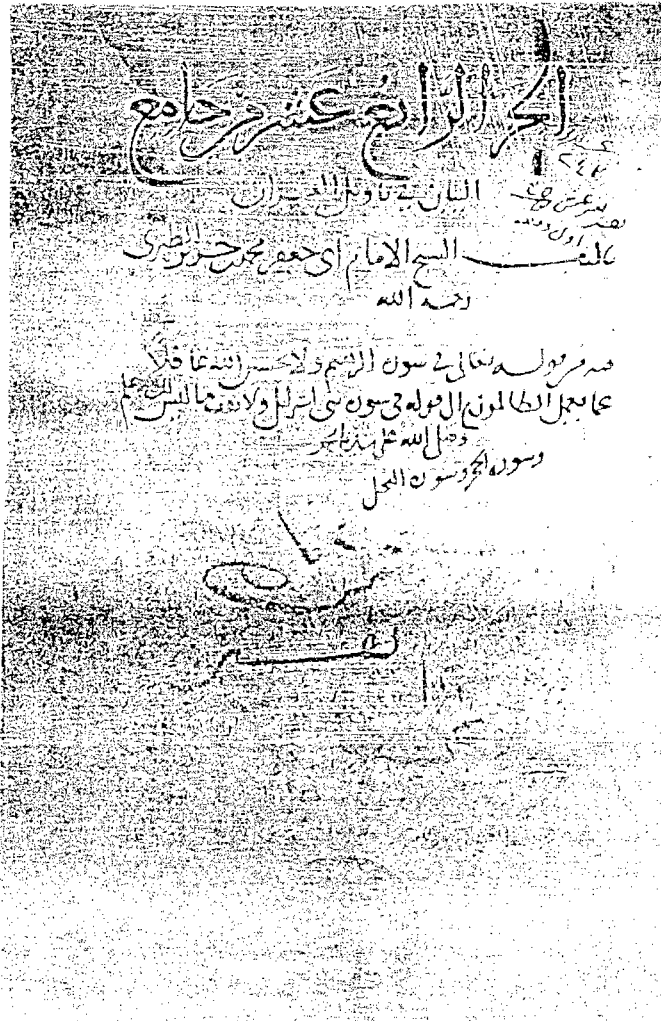 الجزء الرابع عشر من جامع
البيان في تاويل القران
تاليف الشيخ الامام ابي جعفر محمد بن جرير الطبري
رحمه الله
فيه من قوله تعالى في سورة ابرهيم ولا تحسبن الله غافلا
عما يعمل الظالمون الى قوله في سورة بني اسرايل ولا تقف ما ليس لك به علم
وصلى الله على
وسورة الحجر وسورة النحل
٢٤٧
تفسير